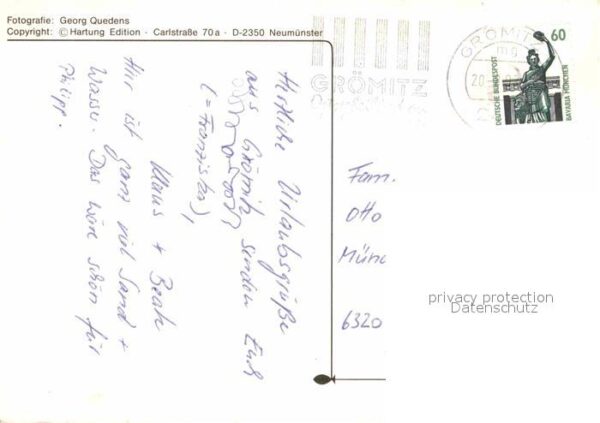 Fotografie: Georg Quedens
Copyright: © Hartung Edition - Carlstraße 70a - D-2350 Neumünster
GRÖMITZ
GRÖMITZ
20
60
DEUTSCHE BUNDESPOST
BAVARIA MÜNCHEN
Herzliche Urlaubsgrüße
aus Grömitz senden Euch
(= Franziska),
Klaus + Beate
Hier ist ganz viel Sand +
Wasser. Das wäre schön für
Philipp.
Fam.
Otto
Münc
6320
privacy protection
Datenschutz